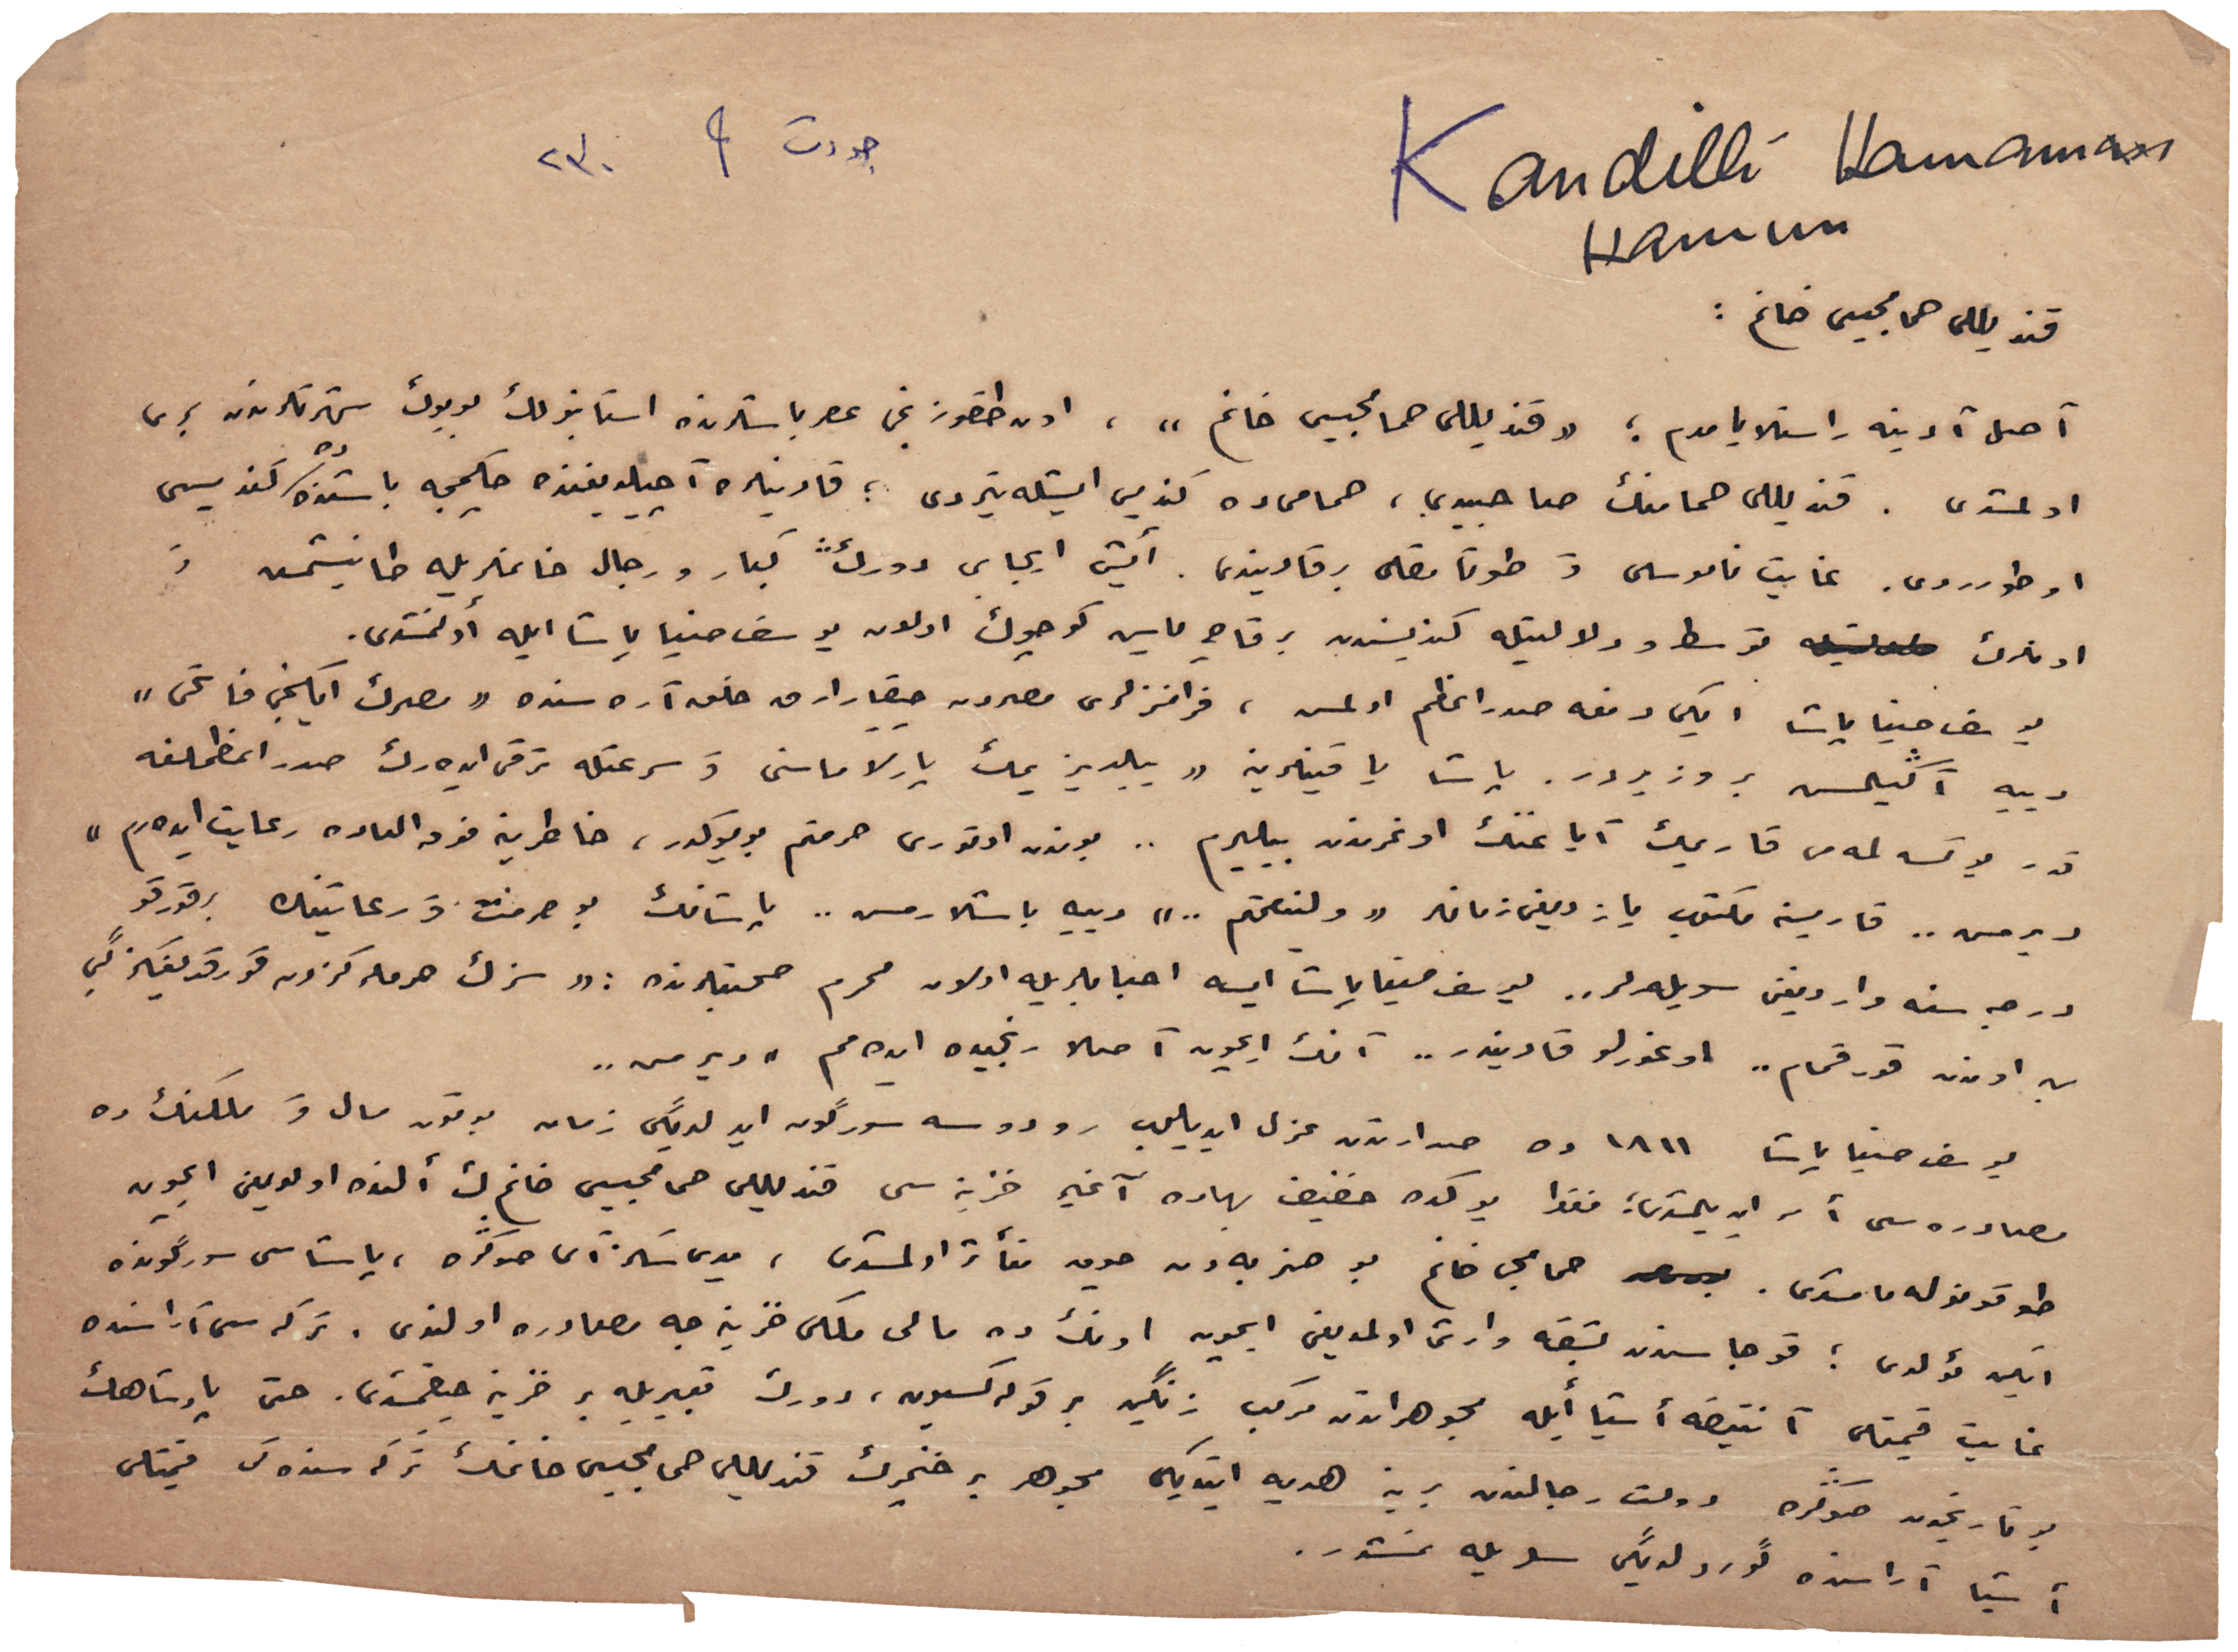 جودت ٩ ٢٣٠
Kandilli Hamamcı
Hanım
قنديللى حمامجيسى خانم :
آصل آدينه راستلايامدم ؛ «قنديللى حمامجيسى خانم» ، اون طقوزنجى عصر باشلرنده استانبولك بويوك شهرتلرندن برى
اولمشدى . قنديللى حمامنك صاحبيدى ، حمامى ده كنديسى ايشله تيردى ؛ قادينلره آچيلديغنده چكمجه باشنده ده كنديسى
اوطوروردى . غايت ناموسلى وَ طوتاقلى بر قاديندى . ايش ايجابى دورك كبار و رجال خانملريله طانيشمش وَ
اونلرك توسط و دلالتيله كنديسندن بر قاچ ياش كوچوك اولان يوسف ضيا پاشا ايله أولنمشدى .
يوسف ضيا پاشا ايكى دفعه صدراعظم اولمش ، فرانسزلرى مصردن چيقاراراق خلق آره سنده «مصرك ايكنجى فاتحى»
دييه آكيلمش بر وزيردر . پاشا ياقينلرينه «ييلديزيمك پارلاماسنى وَ سرعتله ترقى ايده رك صدراعظملغه
قدر يوكسه لمه مى قاريمك آياغنك اوغرندن بيليرم .. بوندن اوتورى حرمتم بويوكدر ، خاطرينه فوق العاده رعايت ايده رم»
ديرمش .. قاريسنه مكتوب يازديغى زمانلر «ولينعمتم ..» دييه باشلارمش .. پاشانك بو حرمت وَ رعايتنك بر قورقو
درجه سنه وارديغى سويله نير .. يوسف ضيا پاشا ايسه احبابلريله اولان محرم صحبتلرنده : «سزك حرملركزدن قورقديغكز گبى
بن اوندن قورقمام .. اوغورلو قاديندر .. آنك ايچون آصلا رنجيده ايده مم» ديرمش ..
يوسف ضيا پاشا ١٨١١ ده صدارتدن عزل ايديلوب رودوسه سورگون ايديلديگى زمان بوتون مال وَ ملكنك ده
مصادره سى أمر ايديلمشدى ؛ فقط يوكده خفيف بهاده آغير خزينه سى قنديللى حمامجيسى خانمك ألنده اولديغى ايچون
طوقونوله مامشدى . حمامجى خانم بو ضربه دن چوق متأثر اولمشدى ، يدى سكز آى صوكره ، پاشاسى سورگونده
ايكن ئولدى ؛ قوجاسندن بشقه وارثى اولمديغى ايچون اونك ده مالى ملكى خزينه جه مصادره اولندى . تركه سى آراسنده
غايت قيمتلى آنتيقه أشيا أيله مجوهراتدن مركب زنگين بر قوله كسيون ، دورك تعبيريله بر خزينه چيقمشدى . حتى پادشاهك
بو تاريخدن صوكره دولت رجالندن برينه هديه ايتديكى مجوهر بر خنجرك قنديللى حمامجيسى خانمك تركه سنده كى قيمتلى
أشيا آراسنده گورولديگى سويله نمشدر .